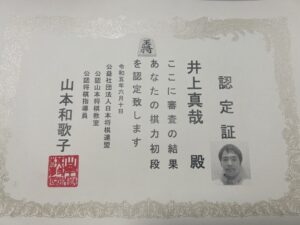 認定証
井上真哉 殿
ここに審査の結果
あなたの棋力初段
を認定致します
令和五年六月十日
公益社団法人日本将棋連盟
公認山本将棋教室
公認将棋指導員
山本和歌子